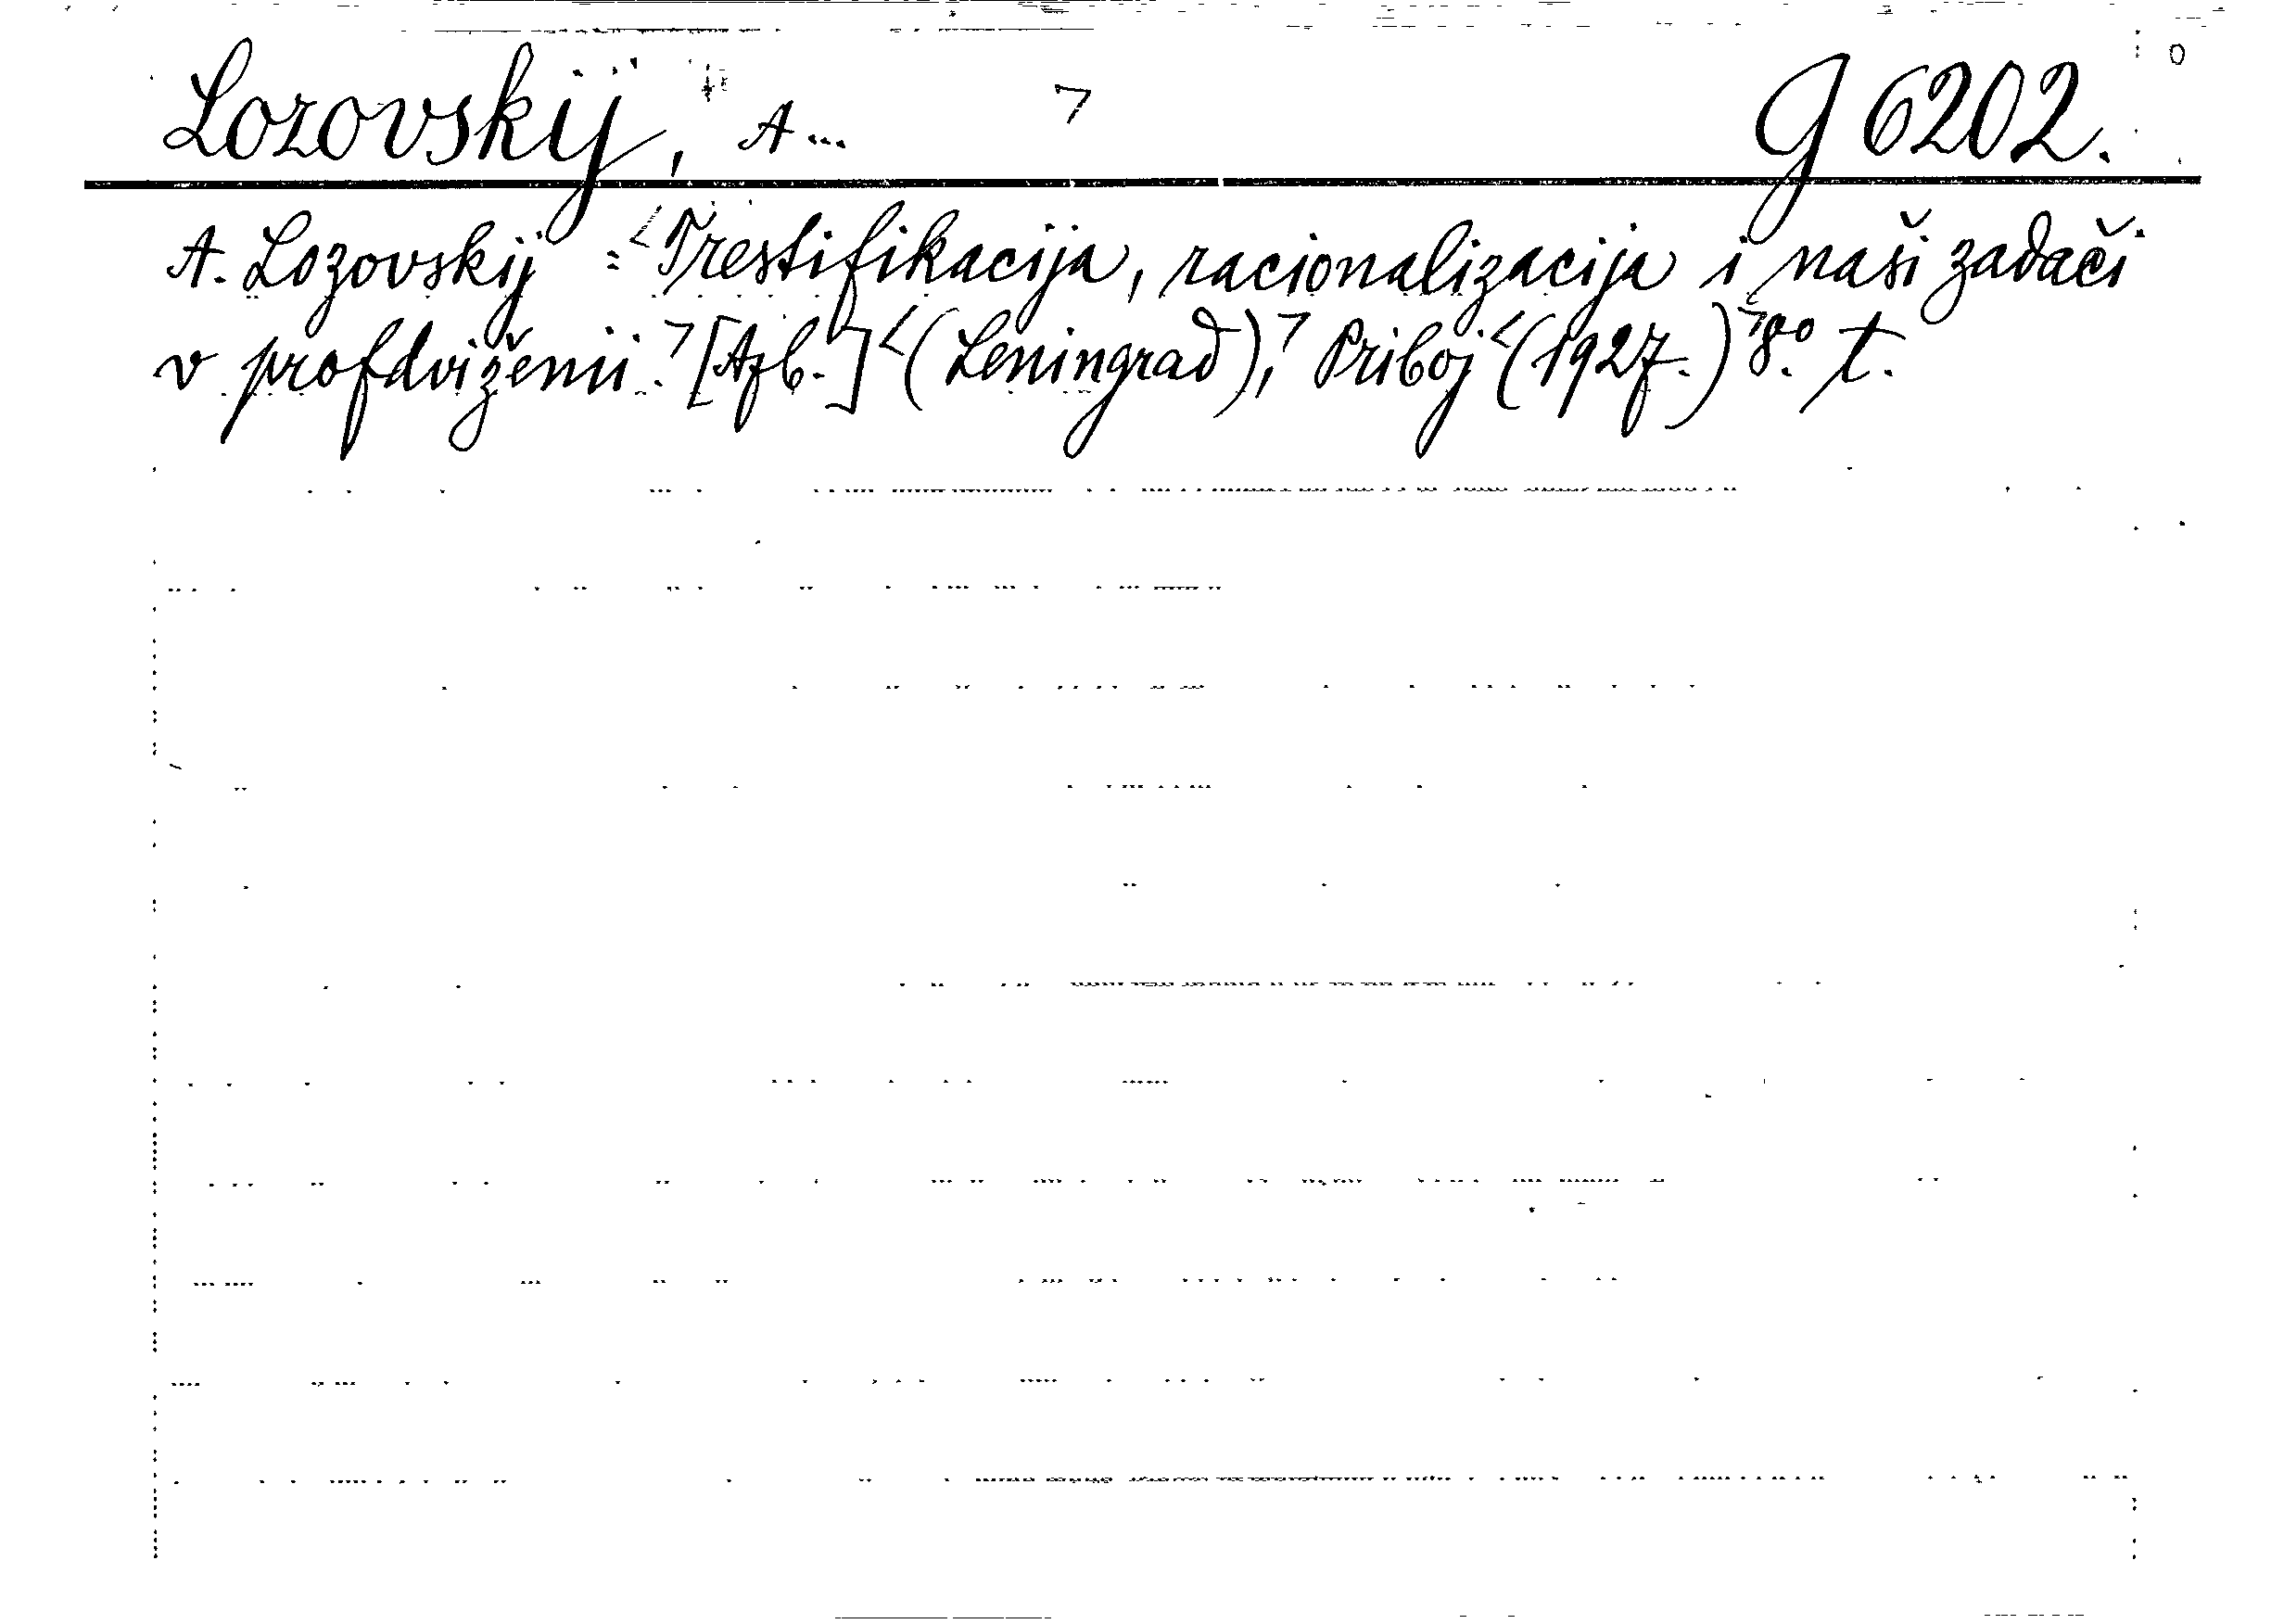 Lozovskij, A... G 6202.
A. Lozovskij: Trestifikacija, racionalizacija i naši zadači
v profdviženii. [Azb.] (Leningrad), Priboj (1927.) 8°. t.